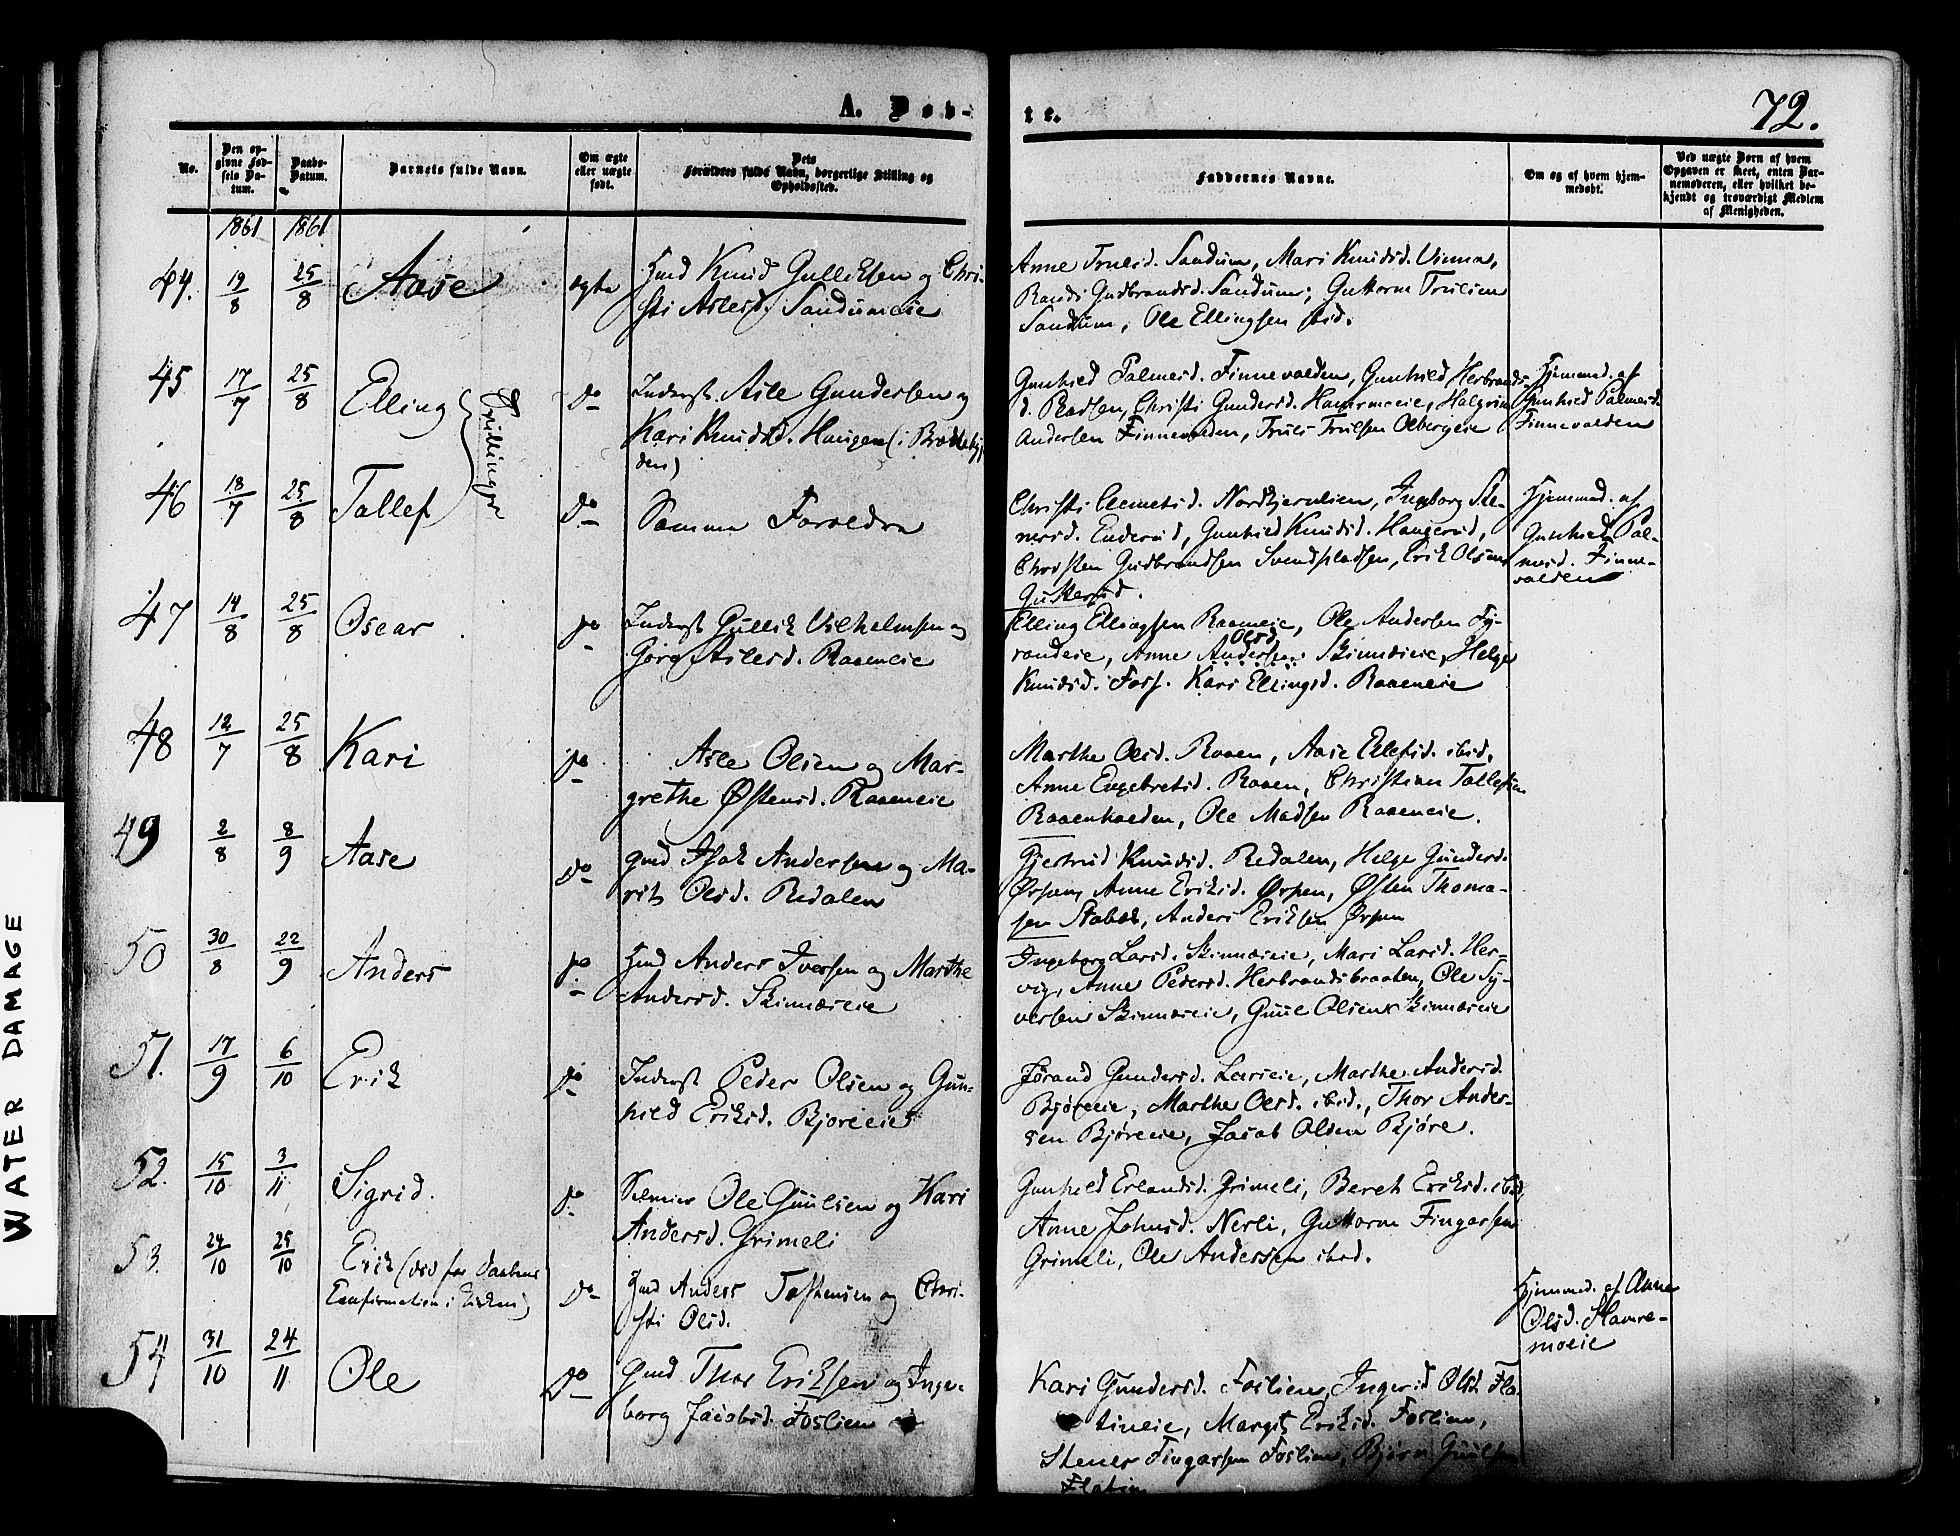 A. Døb-
te.
72.
No.
Den op-
givne Fød-
sels Da-
tum.
Daabs-
Datum.
Barnets fulde Navn.
Om ægte
eller uægte
født.
Dets
Forældres fulde Navn, borgerlige Stilling og
Opholdssted.
Faddernes Navne.
Om og af hvem hjem-
medøbt.
Ved uægte Børn af hvem
Opgaven er skeet, enten Bar-
nemoderen, eller hvilket be-
kjendt og troværdigt Medlem
af Menigheden.
1861 1861
44. 19/8 25/8 Aase ægte Hmd Knud Gulliksen og Chri-
sti Aslesd. Sandumeie
Anne Trulsd. Sandum, Mari Knudsd. Vinna,
Randi Gudbrandsd. Sandum; Guttorm Trulsen
Sandum, Ole Ellingsen ibid.
45 17/7 25/8 Elling Do Inderst. Asle Gundersen og
Kari Knudsd. Haugen (i Brættebyg-
den)
Tvillinger
Gunhild Palmesd. Finnevolden, Gunhild Herbrands-
d. Pladsen, Christi Gundersd. Hamremoeie, Halgrim
Andersen Finnevolden, Truls Trulsen Olbergeie
Hjemmed. af
Gunhild Palmesd.
Finnevolden
46 18/7 25/8 Tollef Do Samme Forældre
Christi Clemetsd. Nordtjernlien, Ingeborg Ste-
nersd. Enderud, Gunhild Knudsd. Haugerud,
Christen Gudbrandsen Svendspladsen, Erik Olsen
Gutterud.
Hjemmed. af
Gunhild Pal-
mesd. Finne-
volden
47 14/8 25/8 Oscar Do Inderst Gullik Vilhelmsen og
Gøro Aslesd. Raaeneie
Elling Ellingsen Raaeneie, Ole Andersen Fy-
randeie, Anne Andersen Olsd. Skinnæseie, Helge
Knudsd. Foss. Kari Ellingsd. Raaeneie
48 12/7 25/8 Kari Do Asle Olsen og Mar-
grethe Østensd. Raaeneie
Marthe Olsd. Raaen, Aase Ellefsd. ibid,
Anne Engebretsd. Raaen, Christian Tollefsen
Raaenholden, Ole Madsen Raaeneie.
49 2/8 8/9 Aase Do Gmd Isak Andersen og Ma-
rit Olsd. Redalen
Gjertrud Knudsd. Redalen, Helge Gundersd.
Ørpen, Anne Eriksd. Ørpen, Østen Thoma-
sen Stabæk, Anders Eriksen Ørpen
50 30/8 22/9 Anders Do Hmd Anders Iversen og Marthe
Andersd. Skinnæseie
Ingeborg Larsd. Skinnæseie, Mari Larsd. Her-
vig, Anne Pedersd. Herbrandsbraaten, Ole Sy-
versen Skinnæseie, Guul Olsen Skinnæseie
51. 17/9 6/10 Erik Do Inderst Peder Olsen og Gun-
hild Eriksd. Bjøreeie
Jørand Gundersd. Larseie, Marthe Andersd.
Bjøreeie, Marthe Olsd. ibid., Thor Ander-
sen Bjøreeie, Jacob Olsen Bjøre.
52. 15/10 3/11 Sigrid. Do Selveier Ole Guulsen og Kari
Andersd. Grimeli
Gunhild Erlandsd. Grimeli, Bereth Eriksd. ibid,
Anne Johnsd. Nerli, Guttorm Fingarsen
Grimeli, Ole Anderssen ibid.
53. 24/10 25/10 Erik (død før Daabens
Confirmation i Kirken) Do Hmd Anders Tostensen og Chri-
sti Olsd.
Hjemmed. af Anne
Olsd. Hamre-
moeie
54 31/10 24/11 Ole Do Gmd Thor Eriksen og Inge-
borg Jacobsd. Foslien
Kari Gundersd. Foslien, Ingerid Olsd. Fla-
tineie, Margit Eriksd. Foslien,
Stener Fingarsen Foslien, Bjørn Guulsen
Flatin
WATER DAMAGE